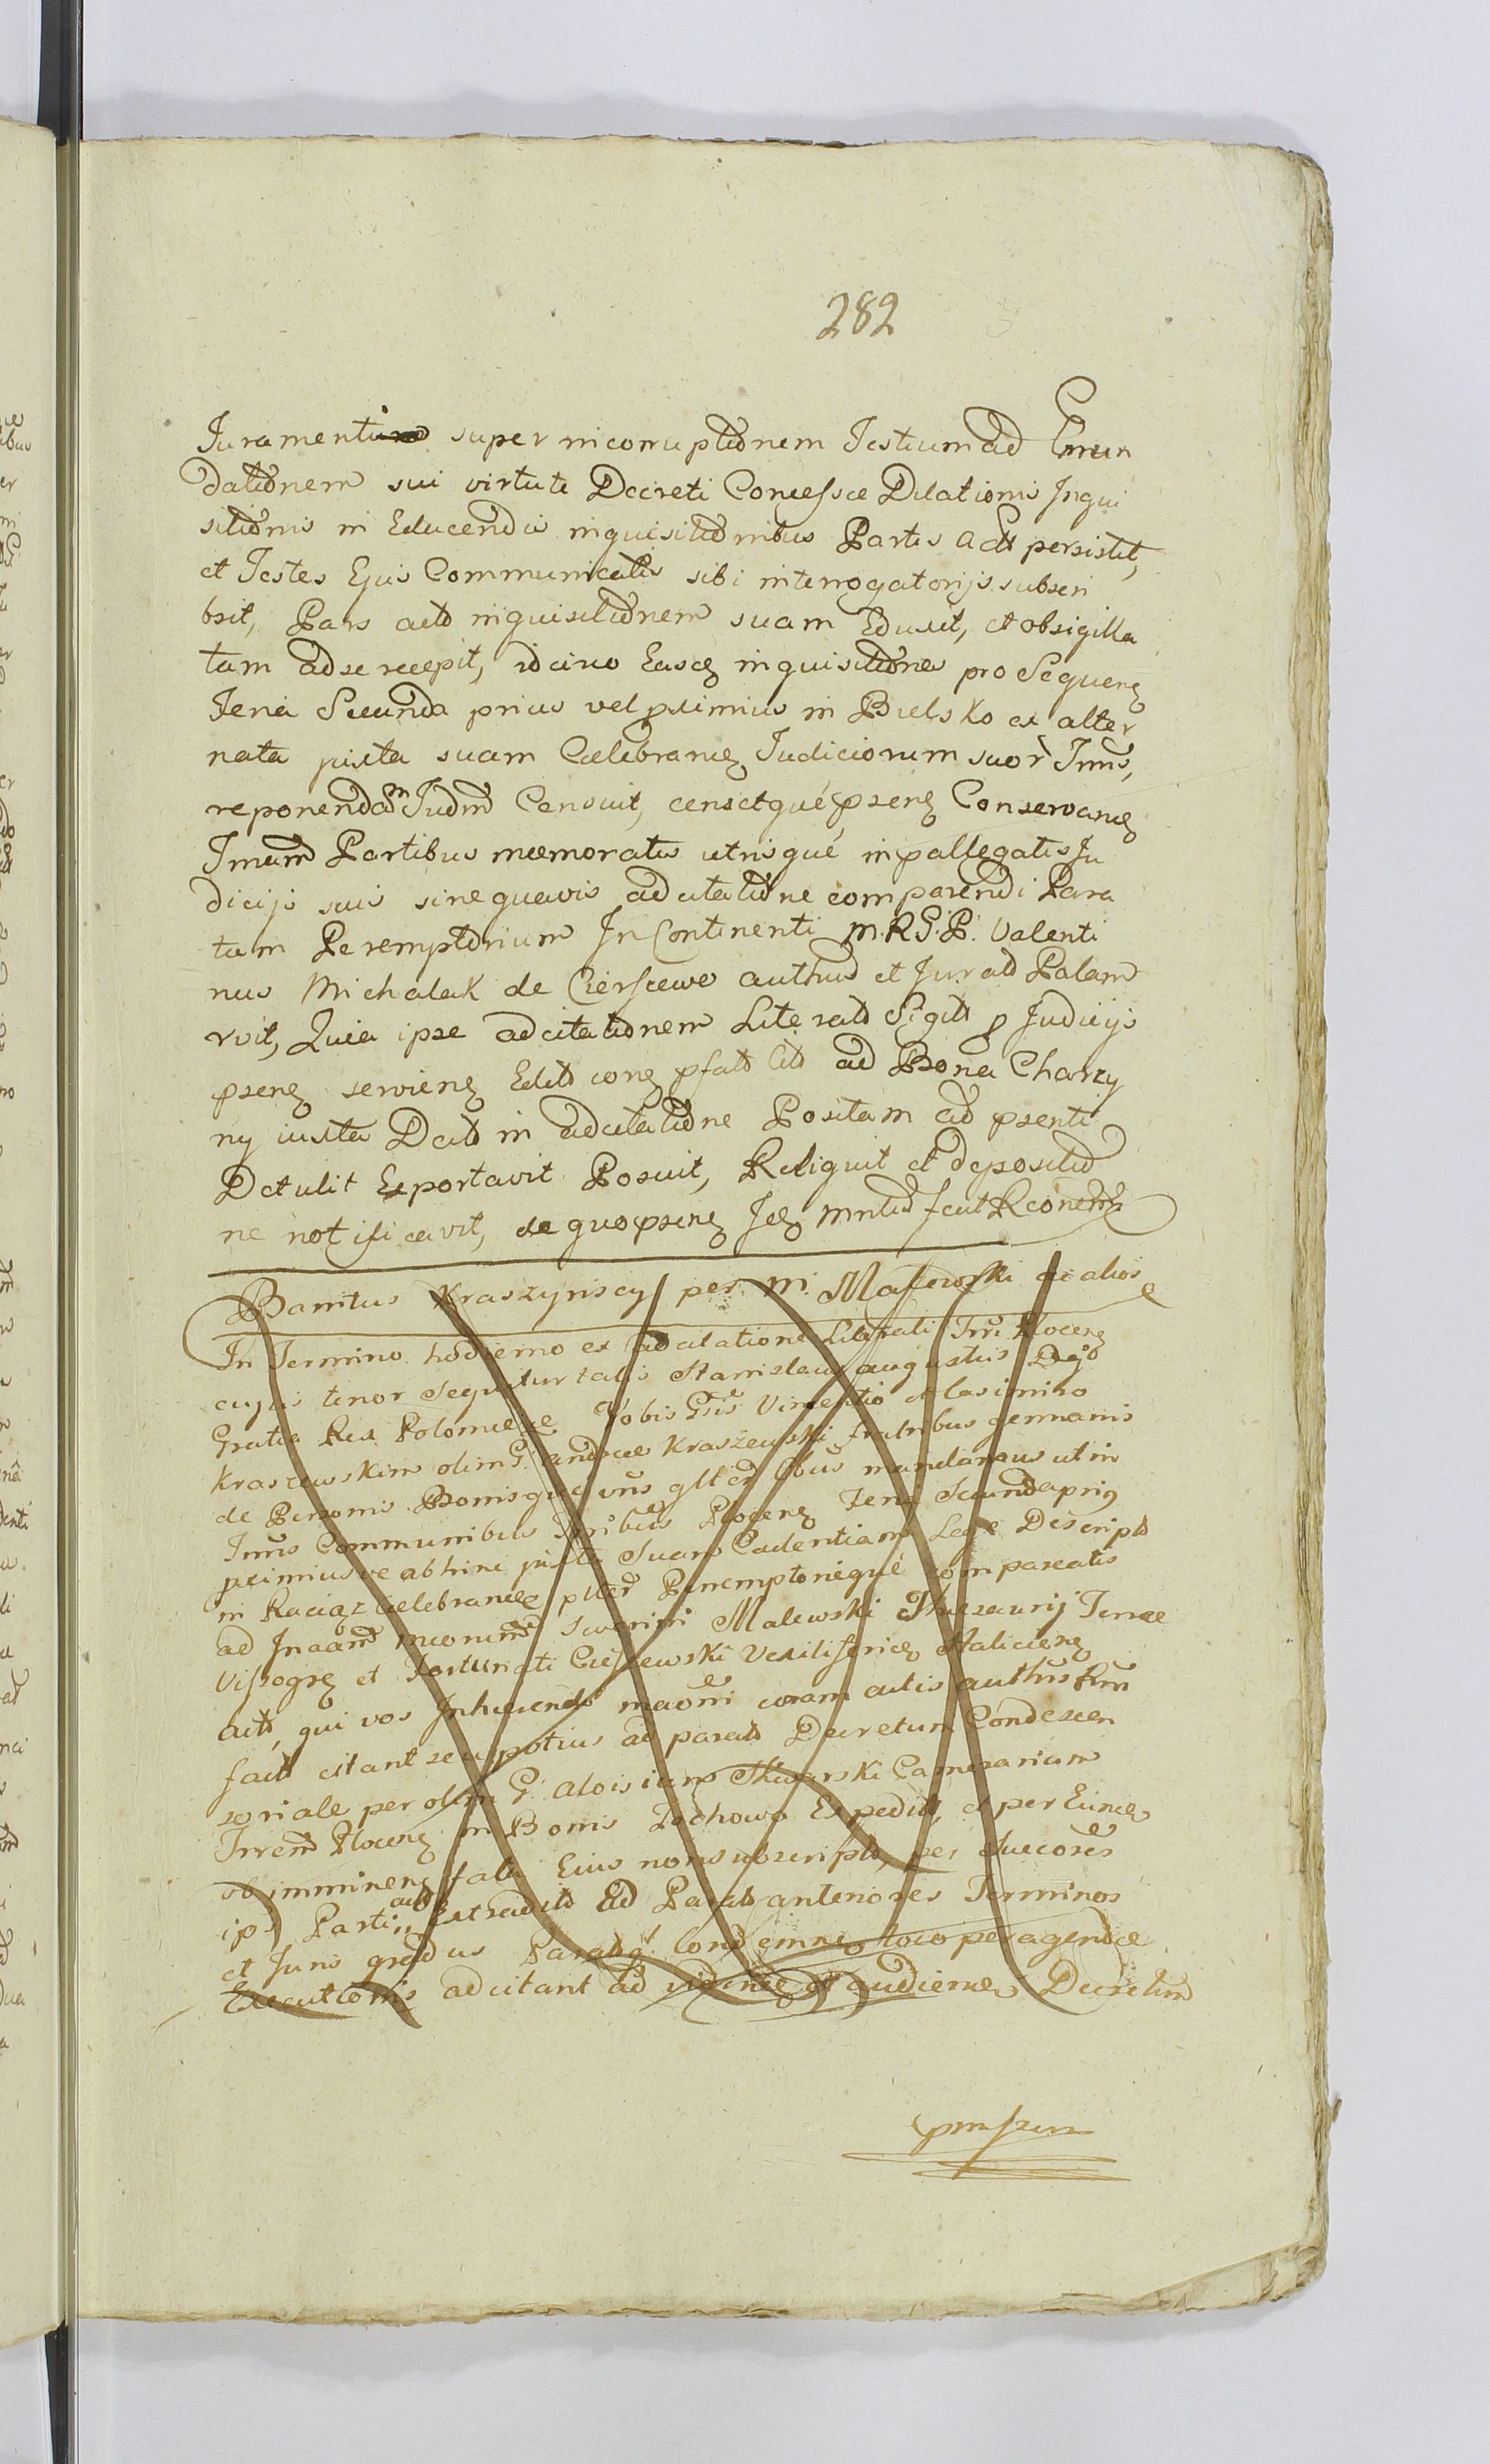 282
Juramentum super incorruptionem Testium ad Emun
dationem sui virtute Decreti Concessae Dilationis Inqui
sitionis in Educendis inquisitionibus Partis Act persistit,
et Testes Ejus Communicatis sibi interrogatorijs subscri
bsit, Pars act inquisitionem suam Eduxit, et obsigilla
tam ad se recepit, idcirco Easq inquisitiones pro Sequenq
Feria Secunda prius vel pximius in Bielsko ex alter
nata juxta suam Celebranq Judiciorum suor Trnis,
reponendam Judm Censuit, censetque psenq Conservanq
Trnum Partibus memoratis utrisque in pallegatis Ju
dicijs suis sine quavis adcitatione comparendi Para
tum Peremptorium In Continenti M.R.G.P. Valenti
nus Michalak de Cierszewo authus et Jurat Palam
rvit, Quia ipse adcitationem Literat Sigit p Judicijs
psenq servienq Edit conq pfat Cit ad Bona Charzy
ny iuxta Dat in adcitatione Positam ad psenti
Detulit Exportavit Posuit, Reliquit et depositio
ne notificavit, de quo psenq Jeq mnlem fcit Rconem
Banitus Kraszynscy per M. Malewski ac alios
In Termino hodierno ex adcitatione Literali Trri Plocenq
cujus tenor sequitur talis Stanislaus augustus Dej
Gratia Rex Poloniae Vobis Gsis Vincentio et Casimiro
Kraszewskim olim G. andreae Kraszewski fratribus germanis
de Personis Bonisque vris glter Obus mandamus ut in
Trnis Communibus Trribus Plocenq Feria Secunda prius
pximiusve abhinc juxta suam Cadentiam Lege Descript
in Raciąż Celebranq pltter Peremptorieque compareatis
ad Jnaam Malewski Thesaurij Terrae
Vissogrq et Fortunati Cieszewski Vexiliferiq Haliciensq
act, qui vos Inhaerendo coram actis authis Rum
fact citant seu potius ad parat Decretum Condescen
soriale per olim G. Aloisium Skwarski Camerarium
Trrem Plocenq in Bonis Żochowo Expedit, et per Eunq
ob imminenq fata Eius non subscript, per Succores
ips Parti act Extradit Ad Parat anteriores Terminos
et Juris gradus Parat Condemnq loco peragendae
Executionis adcitant ad videnq et audienq Decretum